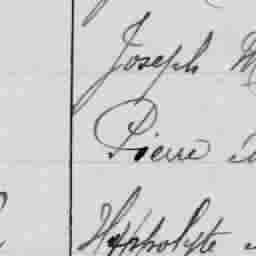 Joseph
Pierre
Hyppolyte